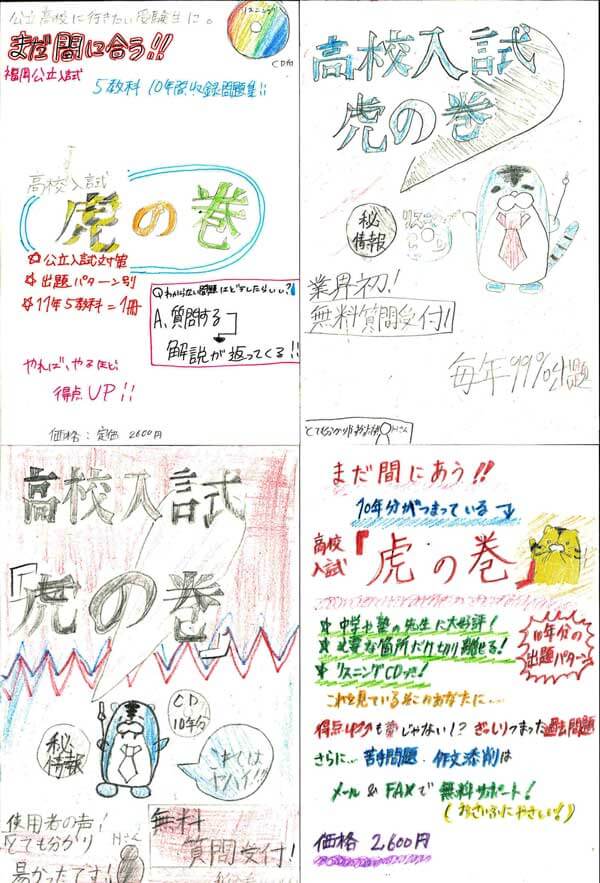 公立高校に行きたい受験生に。
まだ間に合う!!
リスニング
CD付
福岡公立入試
5教科 10年間収録問題集!!
高校入試
虎の巻
☆公立入試対策
☆出題パターン別
☆11年5教科=1冊
Qわからない問題はどうしたらいい?
A、質問する
解説が返ってくる!!
やれば、やるほど
得点UP!!
価格:定価 2600円
高校入試
虎の巻
秘
情報
CD
業界初!
無料質問受付!
毎年99%出題
Hさん
高校入試
「虎の巻」
秘
情報
CD
10年分
これは
ヤバイ!!
使用者の声!
Hさん
とても分かり
易かったです!
無料
質問受付!
まだ間にあう!!
10年分がつまっている
高校
入試
『虎の巻』
★中学や塾の先生に大好評!
★必要な箇所だけ切り離せる!
★リスニングCDつき!
10年分の
出題パターン
これを見ているそこのあなたに…
得点UPも夢じゃない!?ぎっしりつまった過去問題
さらに…苦手問題・作文添削は
メール&FAXで無料サポート!
(おさいふにやさしい!)
価格 2,600円